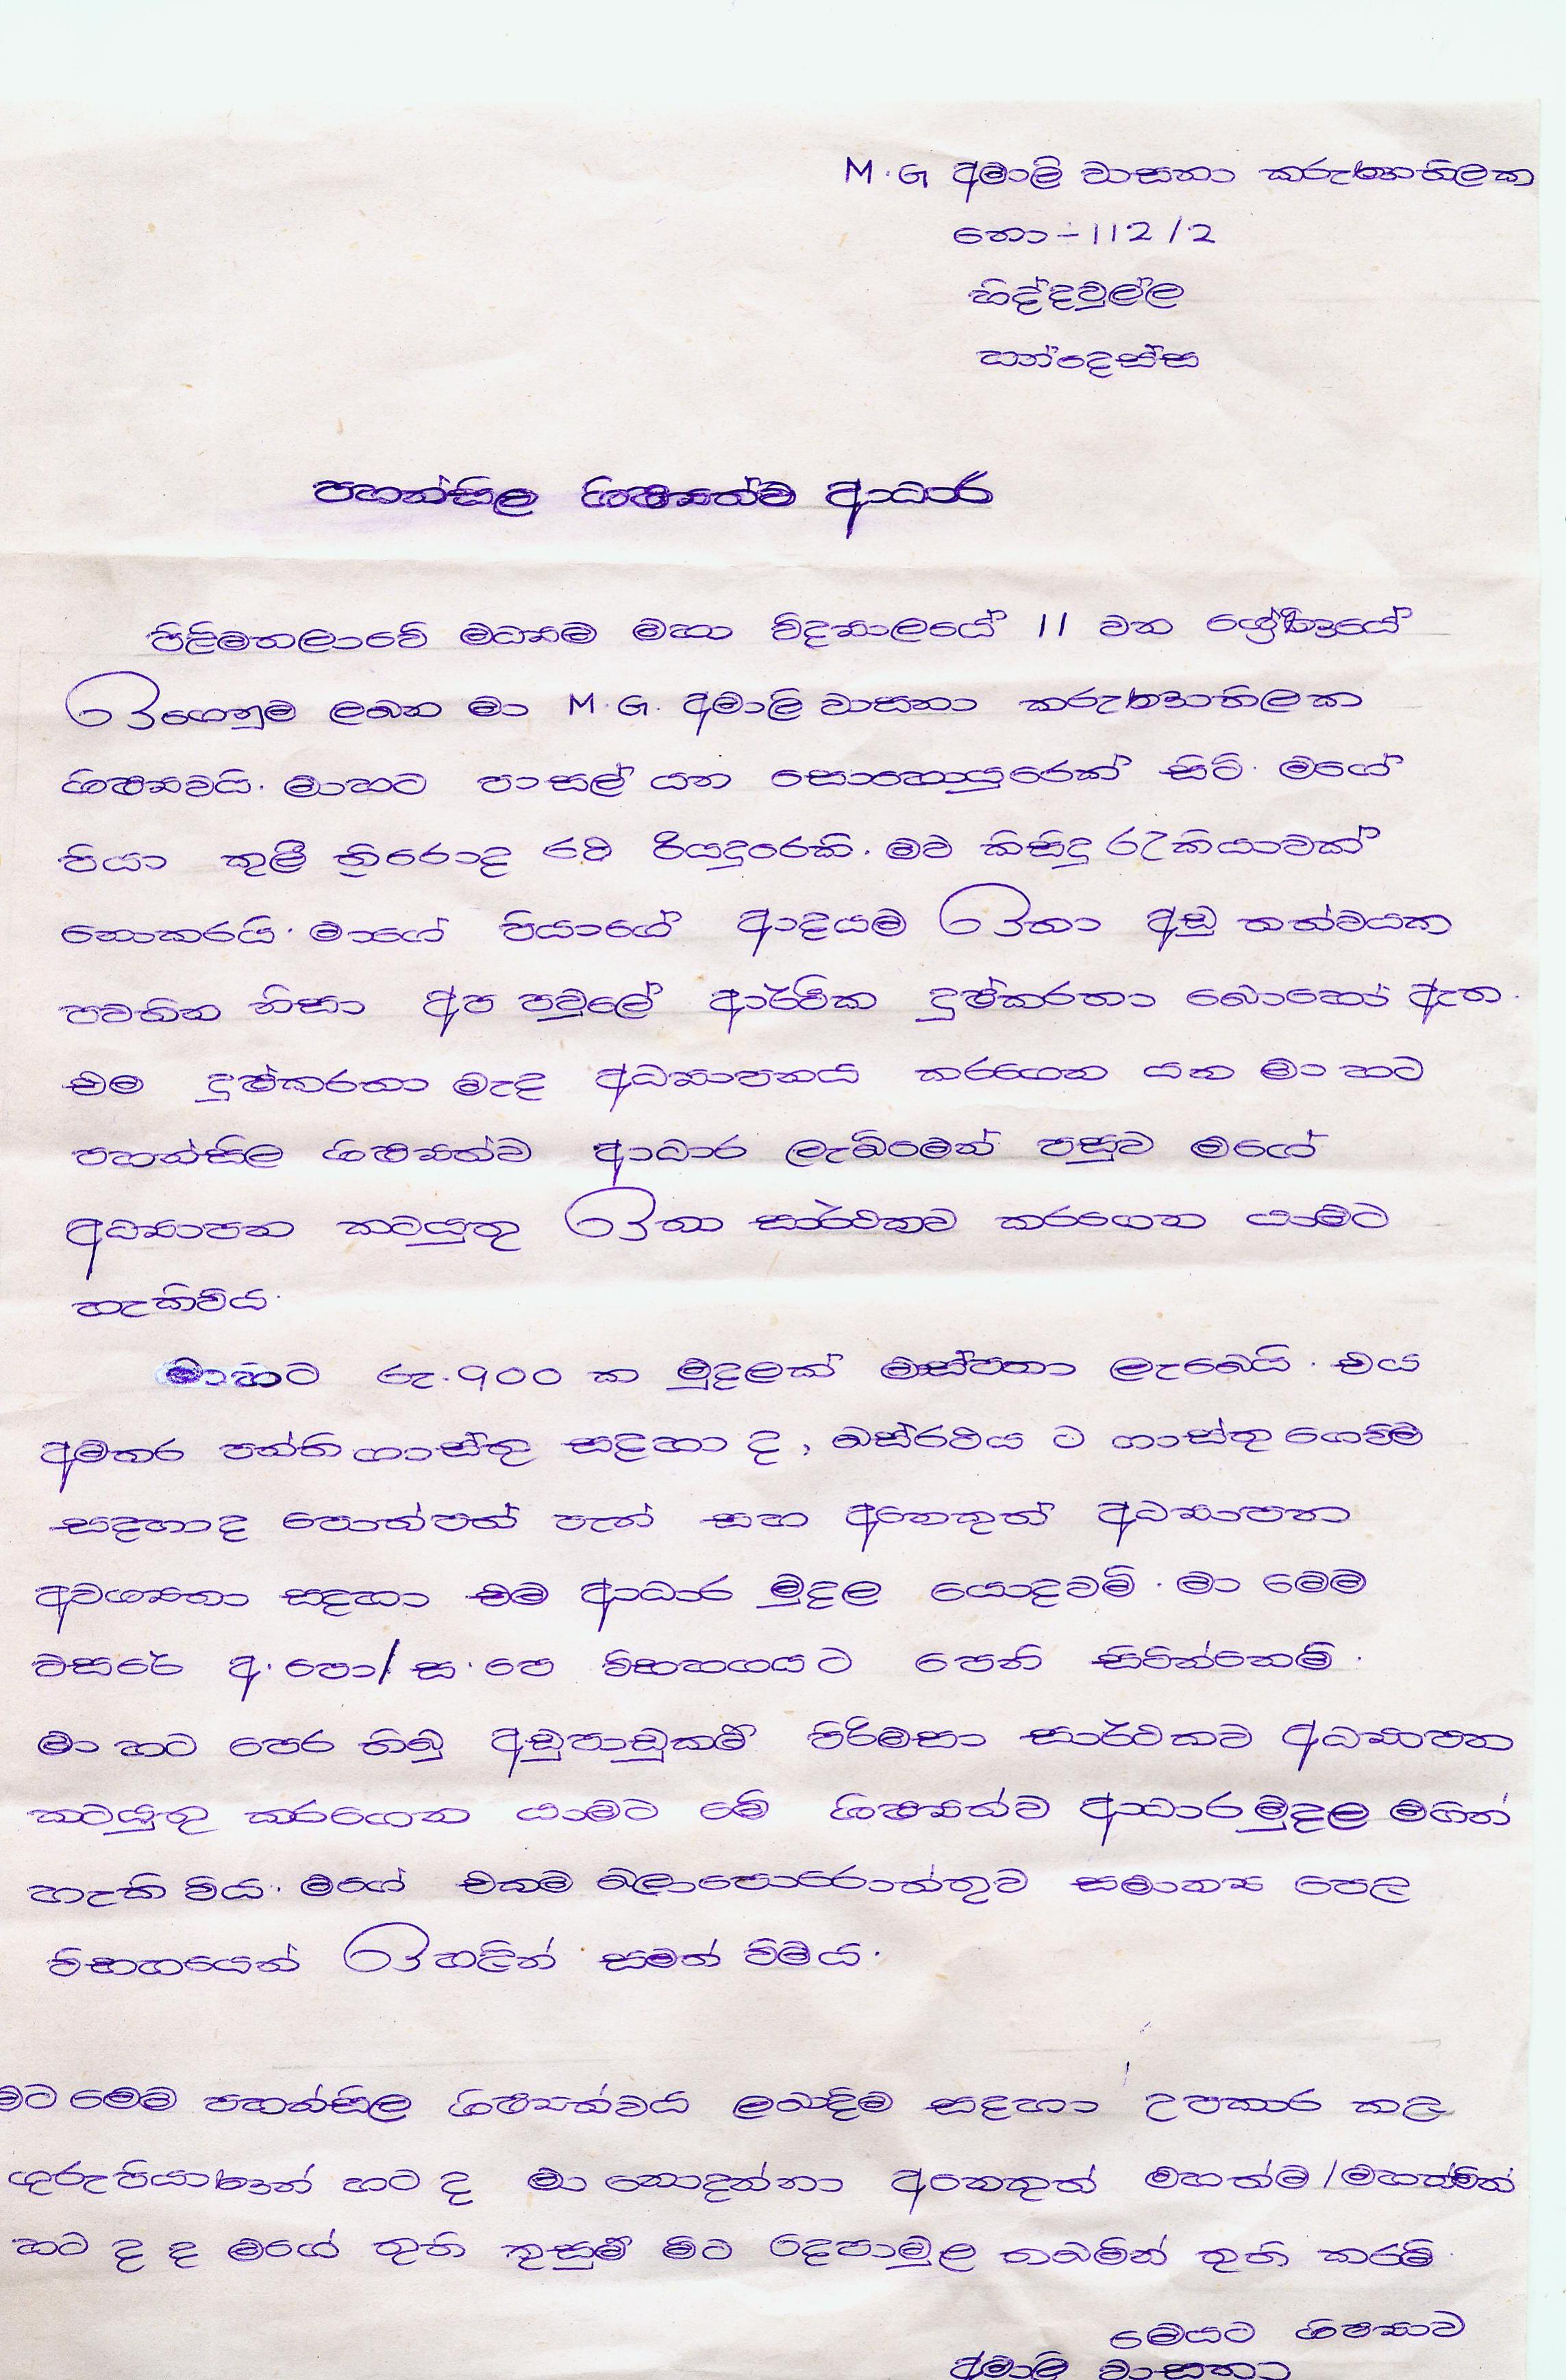 M.G අමාලි වාසනා කරුණාතිලක
නො - 112/2
හිද්දවුල්ල
හන්දෙස්ස
පහන්සිල ශිෂ්‍යත්ව ආධාර
පිළිමතලාවේ මධ්‍යම මහා විද්‍යාලයේ 11 වන ශ්‍රේණියේ
ඉගෙනුම ලබන මා M.G. අමාලි වාසනා කරුණාතිලක
ශිෂ්‍යාවයි. මාහට පාසල් යන සොහොයුරෙක් සිටි. මගේ
පියා කුලී ත්‍රිරෝද රථ රියදුරෙකි. මව කිසිදු රැකියාවක්
නොකරයි. මාගේ පියාගේ ආදයම ඉතා අඩු තත්වයක
පවතින නිසා අප පවුලේ ආර්ථික දුෂ්කරතා බොහෝ ඇත.
එම දුෂ්කරතා මැද අධ්‍යාපනය කරගෙන යන මා හට
පහන්සිල ශිෂ්‍යත්ව ආධාර ලැබීමෙන් පසුව මගේ
අධ්‍යාපන කටයුතු ඉතා සාර්ථකව කරගෙන යාමට
හැකිවිය.
මාහට රු. 900 ක මුදලක් මාස්පතා ලැබෙයි. එය
අමතර පන්ති ගාස්තු සදහා ද, බස්රථය ට ගාස්තු ගෙවීම
සදහාද පොත්පත් පැන් සහ අනෙකුත් අධ්‍යාපන
අවශ්‍යතා සදහා එම ආධාර මුදල යොදවමි. මා මෙම
වසරේ අ.පො/ස.පෙ විභාගයට පෙනී සිටින්නෙමි.
මා හට පෙර තිබු අඩුපාඩුකම් පිරිමසා සාර්ථකව අධ්‍යාපන
කටයුතු කරගෙන යාමට මේ ශිෂ්‍යත්ව ආධාර මුදල මගින්
හැකි විය. මගේ එකම බලාපොරොත්තුව සමාන්‍ය පෙල
විභාගයෙන් ඉහළින් සමත් වීමයි.
මට මෙම පහන්සිල ශිෂ්‍යත්වය ලබාදීම සදහා උපකාර කල
ගුරුපියාණන් හට ද මා නොදන්නා අනෙකුත් මහත්ම/මහත්මීන්
හට ද ද මගේ තුති කුසුම් මිට දෙපාමුළ තබමින් තුති කරමි.
මෙයට ශිෂ්‍යාව
අමාලි වාසනා